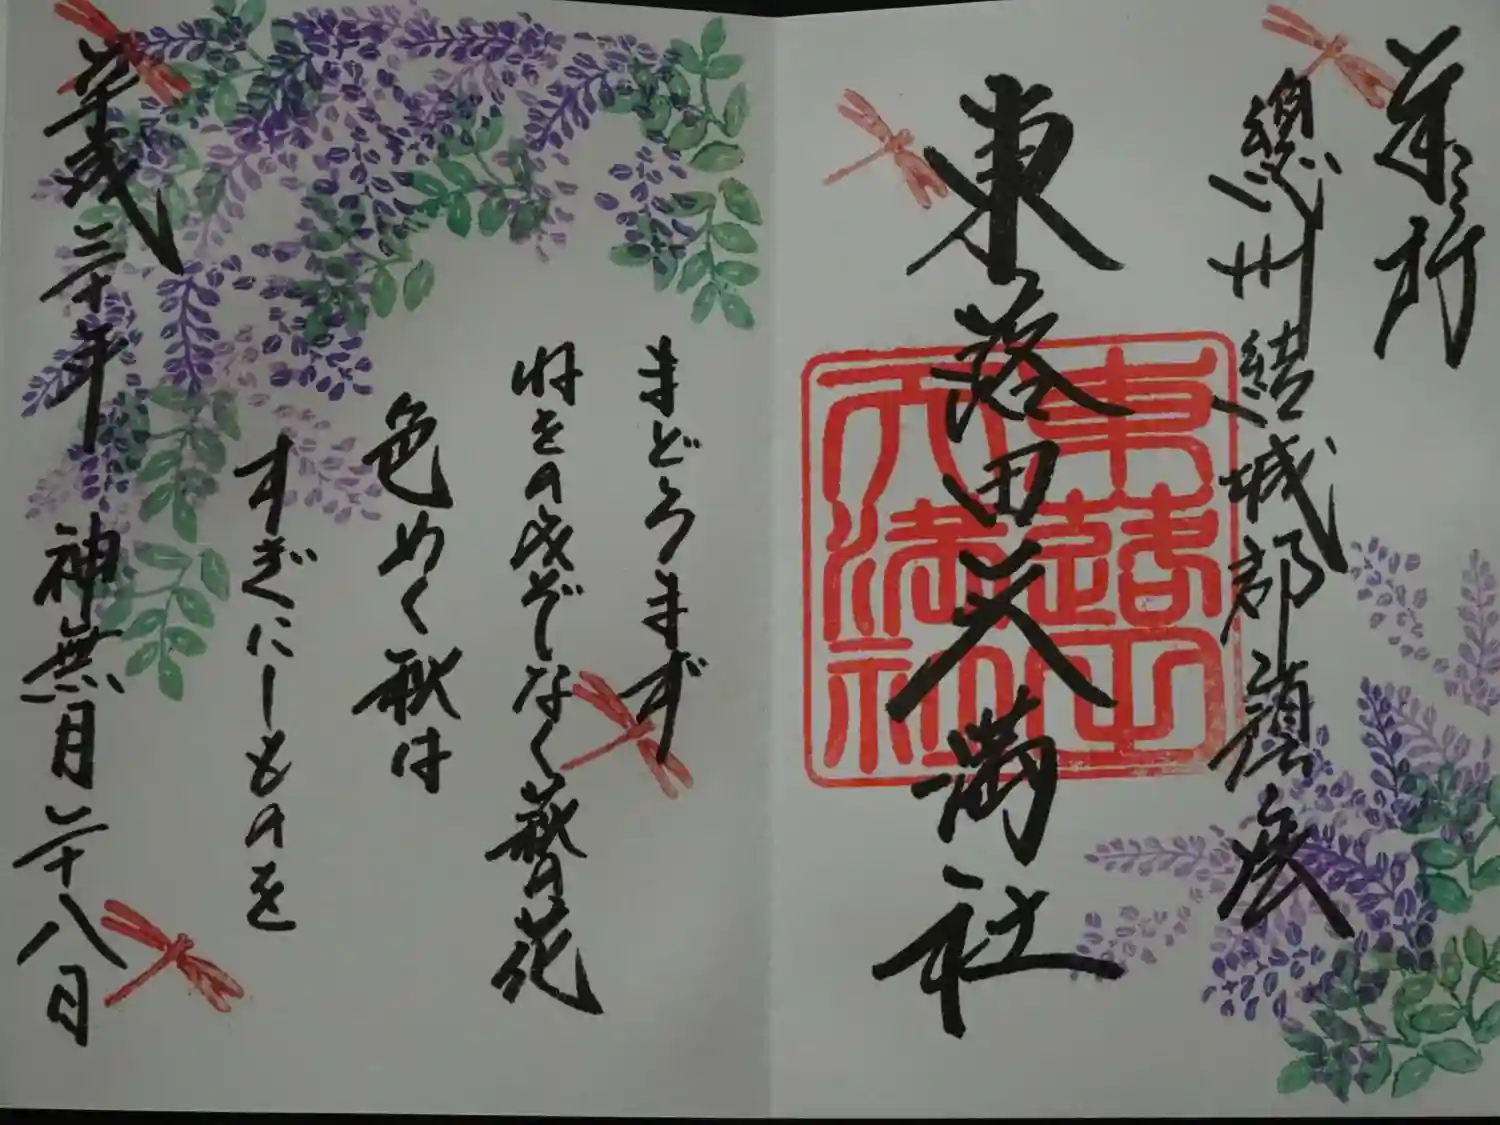 奉拝
總州結城郡鎮座
東蕗田天満社
東蕗田天満社
まどろまず
ねをのみぞなく萩の花
色めく秋は
すぎにしものを
平成三十年 神無月二十八日